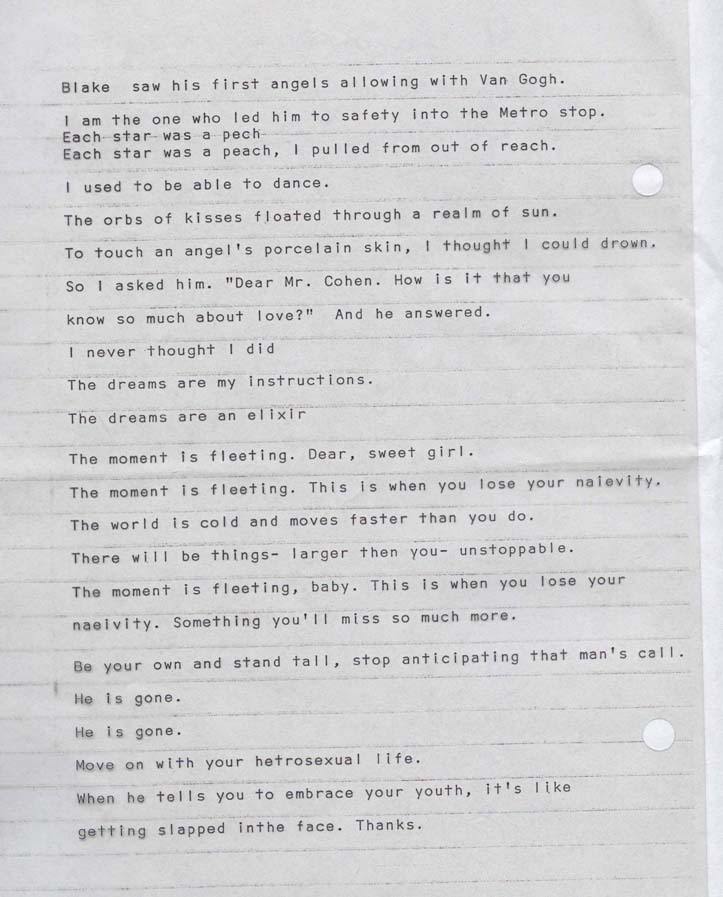 Blake  saw his first angels allowing with Van Gogh.
I am the one who led him to safety into the Metro stop.
Each star was a pech
Each star was a peach, I pulled from out of reach.
I used to be able to dance.
The orbs of kisses floated through a realm of sun.
To touch an angel's porcelain skin, I thought I could drown.
So I asked him. "Dear Mr. Cohen. How is it that you
know so much about love?"  And he answered.
I never thought I did
The dreams are my instructions.
The dreams are an elixir
The moment is fleeting. Dear, sweet girl.
The moment is fleeting. This is when you lose your naievity.
The world is cold and moves faster than you do.
There will be things- larger then you- unstoppable.
The moment is fleeting, baby. This is when you lose your
naeivity. Something you'll miss so much more.
Be your own and stand tall, stop anticipating that man's call.
He is gone.
He is gone.
Move on with your hetrosexual life.
When he tells you to embrace your youth, it's like
getting slapped inthe face. Thanks.